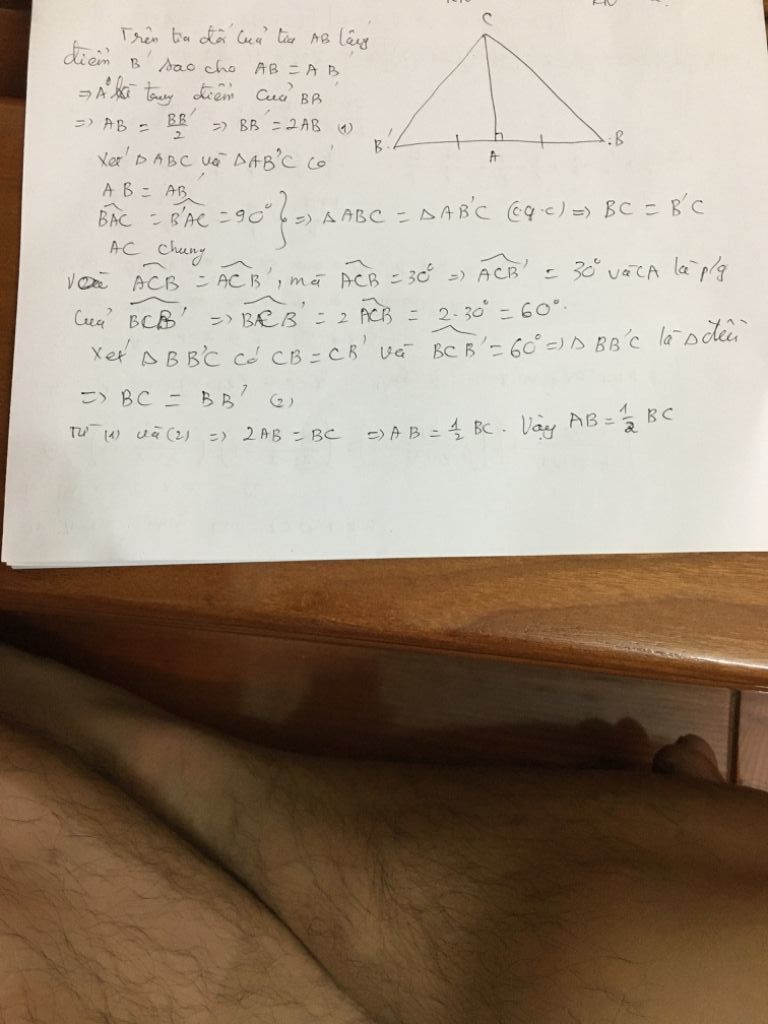 C
Trên tia đối của tia AB lấy
điểm B' sao cho AB = AB'
=> A là trung điểm của BB'
=> AB = BB'/2 => BB' = 2AB (1)
B' A B
Xét ΔABC và ΔAB'C có
AB = AB'
BAC = B'AC = 90° } => ΔABC = ΔAB'C (c.g.c) => BC = B'C
AC chung
và ACB = ACB', mà ACB = 30° => ACB' = 30° và CA là p/g
của BCB' => BCB' = 2 ACB = 2.30° = 60°.
Xét ΔBB'C có CB = CB' và BCB' = 60° => ΔBB'C là Δ đều
=> BC = BB' (2)
Từ (1) và (2) => 2AB = BC => AB = 1/2 BC. Vậy AB = 1/2 BC